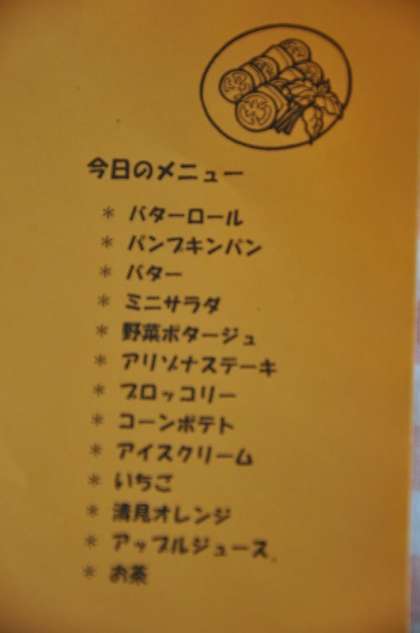 今日のメニュー
* バターロール
* パンプキンパン
* バター
* ミニサラダ
* 野菜ポタージュ
* アリゾナステーキ
* ブロッコリー
* コーンポテト
* アイスクリーム
* いちご
* 清見オレンジ
* アップルジュース
* お茶